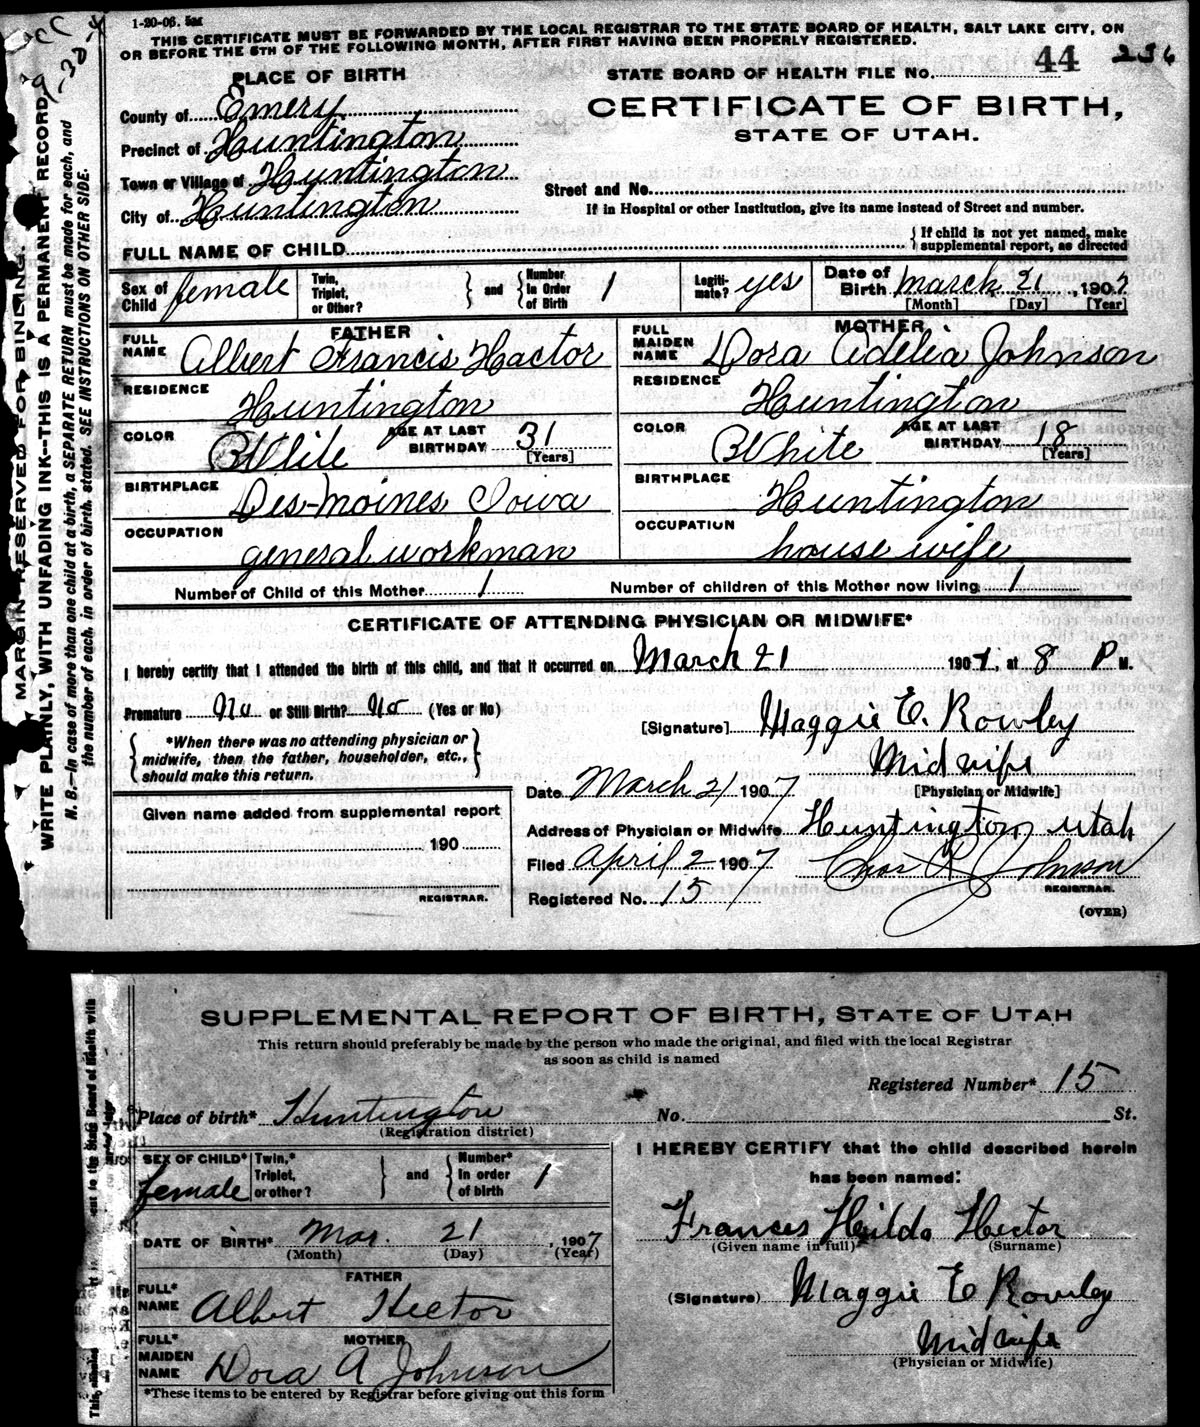 1-20-06. 5M
THIS CERTIFICATE MUST BE FORWARDED BY THE LOCAL REGISTRAR TO THE STATE BOARD OF HEALTH, SALT LAKE CITY, ON
OR BEFORE THE 5TH OF THE FOLLOWING MONTH, AFTER FIRST HAVING BEEN PROPERLY REGISTERED.
MARGIN RESERVED FOR BINDING.
WRITE PLAINLY, WITH UNFADING INK--THIS IS A PERMANENT RECORD.
N. B.--In case of more than one child at a birth, a SEPARATE RETURN must be made for each, and
the number of each, in order of birth, stated. SEE INSTRUCTIONS ON OTHER SIDE.
PLACE OF BIRTH
STATE BOARD OF HEALTH FILE NO. 44 236
County of Emery
CERTIFICATE OF BIRTH,
Precinct of Huntington
STATE OF UTAH.
Town or Village of Huntington
Street and No.
City of Huntington
If in Hospital or other Institution, give its name instead of Street and number.
FULL NAME OF CHILD
If child is not yet named, make
supplemental report, as directed
Sex of Child female
Twin, Triplet, or Other? and Number In Order of Birth 1
Legitimate? yes
Date of Birth March 21, 1907
[Month] [Day] [Year]
FATHER
FULL NAME Albert Francis Hactor
MOTHER
FULL MAIDEN NAME Dora Adelia Johnson
RESIDENCE Huntington
RESIDENCE Huntington
COLOR White AGE AT LAST BIRTHDAY 31 [Years]
COLOR White AGE AT LAST BIRTHDAY 18 [Years]
BIRTHPLACE Des-Moines Iowa
BIRTHPLACE Huntington
OCCUPATION general workman
OCCUPATION house wife
Number of Child of this Mother 1 Number of children of this Mother now living 1
CERTIFICATE OF ATTENDING PHYSICIAN OR MIDWIFE*
I hereby certify that I attended the birth of this child, and that it occurred on March 21 1907, at 8 P M.
Premature No or Still Birth? No (Yes or No)
[Signature] Maggie E. Rowley
*When there was no attending physician or
midwife, then the father, householder, etc.,
should make this return.
Midwife
[Physician or Midwife]
Date March 21 1907
Given name added from supplemental report
190
REGISTRAR.
Address of Physician or Midwife Huntington Utah
Filed April 2 1907 Chas R Johnson
REGISTRAR.
Registered No. 15
(OVER)
SUPPLEMENTAL REPORT OF BIRTH, STATE OF UTAH
This return should preferably be made by the person who made the original, and filed with the local Registrar
as soon as child is named
Registered Number* 15
Place of birth* Huntington No. St.
(Registration district)
SEX OF CHILD* female
Twin,* Triplet, or other? and Number* In order of birth 1
DATE OF BIRTH* Mar. 21, 1907
(Month) (Day) (Year)
FATHER
FULL* NAME Albert Hector
MOTHER
FULL* MAIDEN NAME Dora A Johnson
*These items to be entered by Registrar before giving out this form
I HEREBY CERTIFY that the child described herein
has been named:
Frances Hilda Hector
(Given name in full) (Surname)
(Signature) Maggie E Rowley
Midwife
(Physician or Midwife)